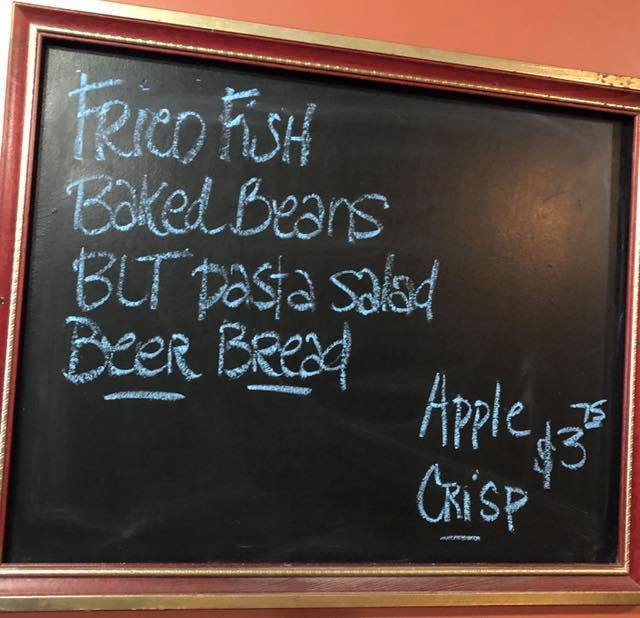 FRieD FiSH
Baked Beans
BLT pasta salad
BeeR BRead
Apple
$3 75
CRiSP